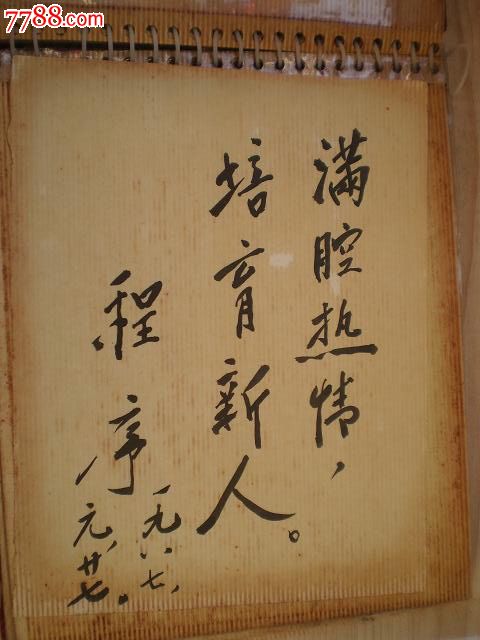 7788.com
满腔热情，
培育新人。
程序
一九八七，
元，廿七。